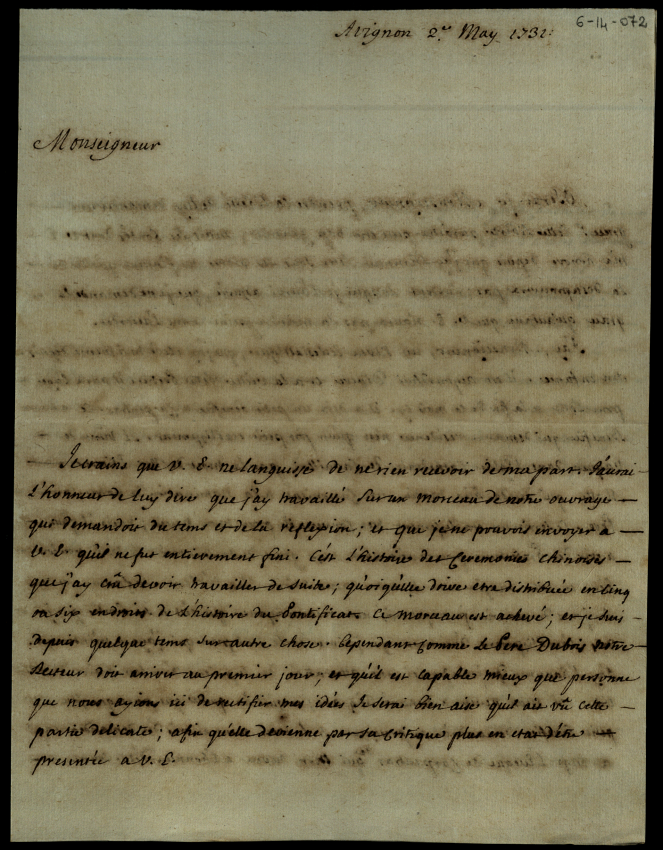 6-14-072
Avignon 2.e May 1731.
Monseigneur
Je crains que V. E. ne languisse de ne rien recevoir de ma part. J'aurai
l'honneur de luy dire que j'ay travaillé sur un morceau de notre ouvrage
qui demandoit du tems et de la reflexion; et que je ne pouvois envoyer a
V. E. qu'il ne fut entierement fini. C'est l'histoire des Ceremonies chinoises
que j'ay crû devoir travailler de suite; quoiqu'elle doive etre distribuée en cinq
ou six endroits de l'histoire du Pontificat. Ce morceau est achevé; et je suis
depuis quelque tems sur autre chose. Cependant comme le Pere Dubris notre
Recteur doit arriver au premier jour; et qu'il est capable mieux que personne
que nous ayions ici de rectifier mes idées je serai bien aise qu'il ait vû cette
partie delicate; afin qu'elle devienne par sa critique plus en etat d'être
presentée a V. E.